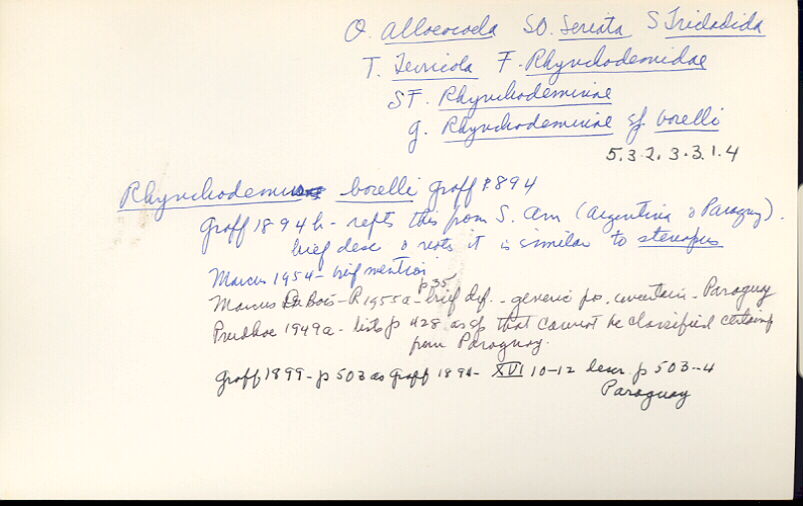 O. Alloeocoela SO. Seriata S Tricladida
T. Terricola F. Rhynchodemidae
SF. Rhynchodeminae
g. Rhynchodeminae sp. borelli
5.3.2.3.3.1.4
Rhynchodemus borelli Graff 1894
Graff 1894 b - repts this from S. Am (Argentina & Paraguay).
brief desc & notes it is similar to stenopus
Marcus 1954 - brief mention
Marcus Du Bois-R 1955a - p35 brief def. - generic pos. uncertain - Paraguay
Prudhoe 1949a - lists p 428 as sp that cannot be classified certainly
from Paraguay.
Graff 1899 - p 503 as Graff 1894 - XVI 10-12 descr. p 503-4
Paraguay